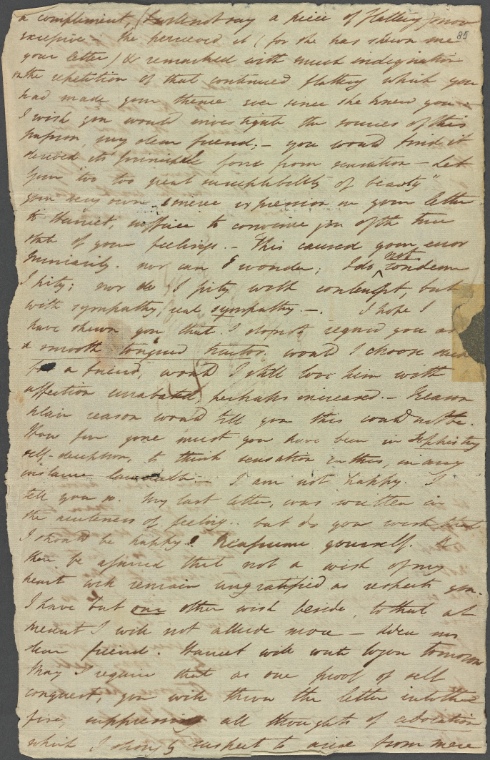 a compliment, I will not say a piece of flattery, more
85
excessive — she perceived it (for she has shewn me
your letter) & remarked with much indignation
on the repetition of that continued flattery which you
had made your theme ever since she knew you —
I wish you would investigate the sources of this
passion my dear friend; — you would find it
derived its principle force from sensation — Let
your "too too great susceptibility of beauty"
your very own sincere expression in your letter
to Harriet, suffice to convince you of the true
state of your feelings. — This caused your error
primarily. nor can I wonder; I do not condemn
I pity; nor do I pity with contempt, but
with sympathy, real sympathy —. I hope I
have shewn you that I do not regard you as
a smooth tongued traitor. would I choose such
for a friend, would I still love him with
affection unabated, perhaps increased. — Reason
plain reason would tell you this could not be.
How far gone must you have been in sophistry
self-deception, to think sensation in this, in any
instance laudable — I am not happy. I
tell you so. My last letter, was written in
the acuteness of feeling. but do you wish that
I should be happy? Reassume yourself, &
then be assured that not a wish of my
heart will remain ungratified as respects you.
I have but one other wish beside. to that at
present I will not allude more — Adieu my
dear friend. Harriet will write to you tomorrow
May I require that as one proof of self
conquest, you will throw the letter into the
fire, suppressing all thoughts of adoration
which I strongly suspect to arise from mere